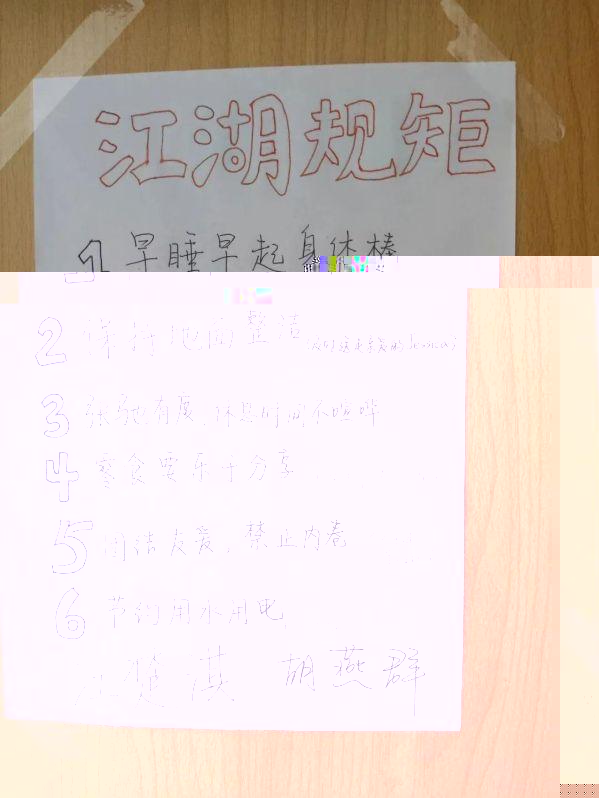 江湖规矩
1 早睡早起身体棒
2 保持地面整洁
3 张弛有度,休息时间不喧哗
4 零食要乐于分享
5 团结友爱,禁止内卷
6 节约用水用电
胡燕群